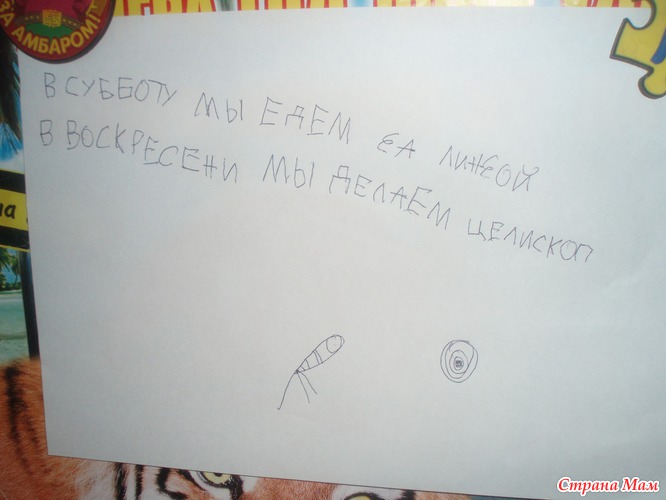 ЗА АМБАРОМ
В СУББОТУ МЫ ЕДЕМ ЕА ЛИЖОЙ
В ВОСКРЕСЕНИ МЫ ДЕЛАЕМ ЦЕЛИСКОП
Страна Мам